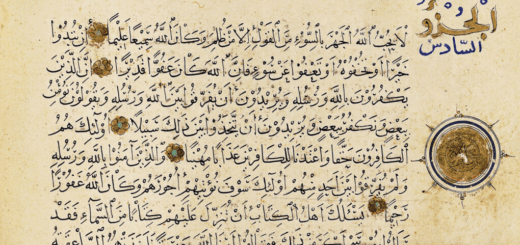 الجزؤ
السادس
لَا يُحِبُّ اللَّهُ الْجَهْرَ بِالسُّوءِ مِنَ الْقَوْلِ إِلَّا مَنْ ظُلِمَ وَكَانَ اللَّهُ سَمِيعًا عَلِيمًا إِنْ تُبْدُوا
خَيْرًا أَوْ تُخْفُوهُ أَوْ تَعْفُوا عَنْ سُوءٍ فَإِنَّ اللَّهَ كَانَ عَفُوًّا قَدِيرًا إِنَّ الَّذِينَ
يَكْفُرُونَ بِاللَّهِ وَرُسُلِهِ وَيُرِيدُونَ أَنْ يُفَرِّقُوا بَيْنَ اللَّهِ وَرُسُلِهِ وَيَقُولُونَ نُؤْمِنُ
بِبَعْضٍ وَنَكْفُرُ بِبَعْضٍ وَيُرِيدُونَ أَنْ يَتَّخِذُوا بَيْنَ ذَلِكَ سَبِيلًا أُولَئِكَ هُمُ
الْكَافِرُونَ حَقًّا وَأَعْتَدْنَا لِلْكَافِرِينَ عَذَابًا مُهِينًا وَالَّذِينَ آمَنُوا بِاللَّهِ وَرُسُلِهِ
وَلَمْ يُفَرِّقُوا بَيْنَ أَحَدٍ مِنْهُمْ أُولَئِكَ سَوْفَ نُؤْتِيهِمْ أُجُورَهُمْ وَكَانَ اللَّهُ غَفُورًا
رَحِيمًا يَسْئَلُكَ أَهْلُ الْكِتَابِ أَنْ تُنَزِّلَ عَلَيْهِمْ كِتَابًا مِنَ السَّمَاءِ فَقَدْ